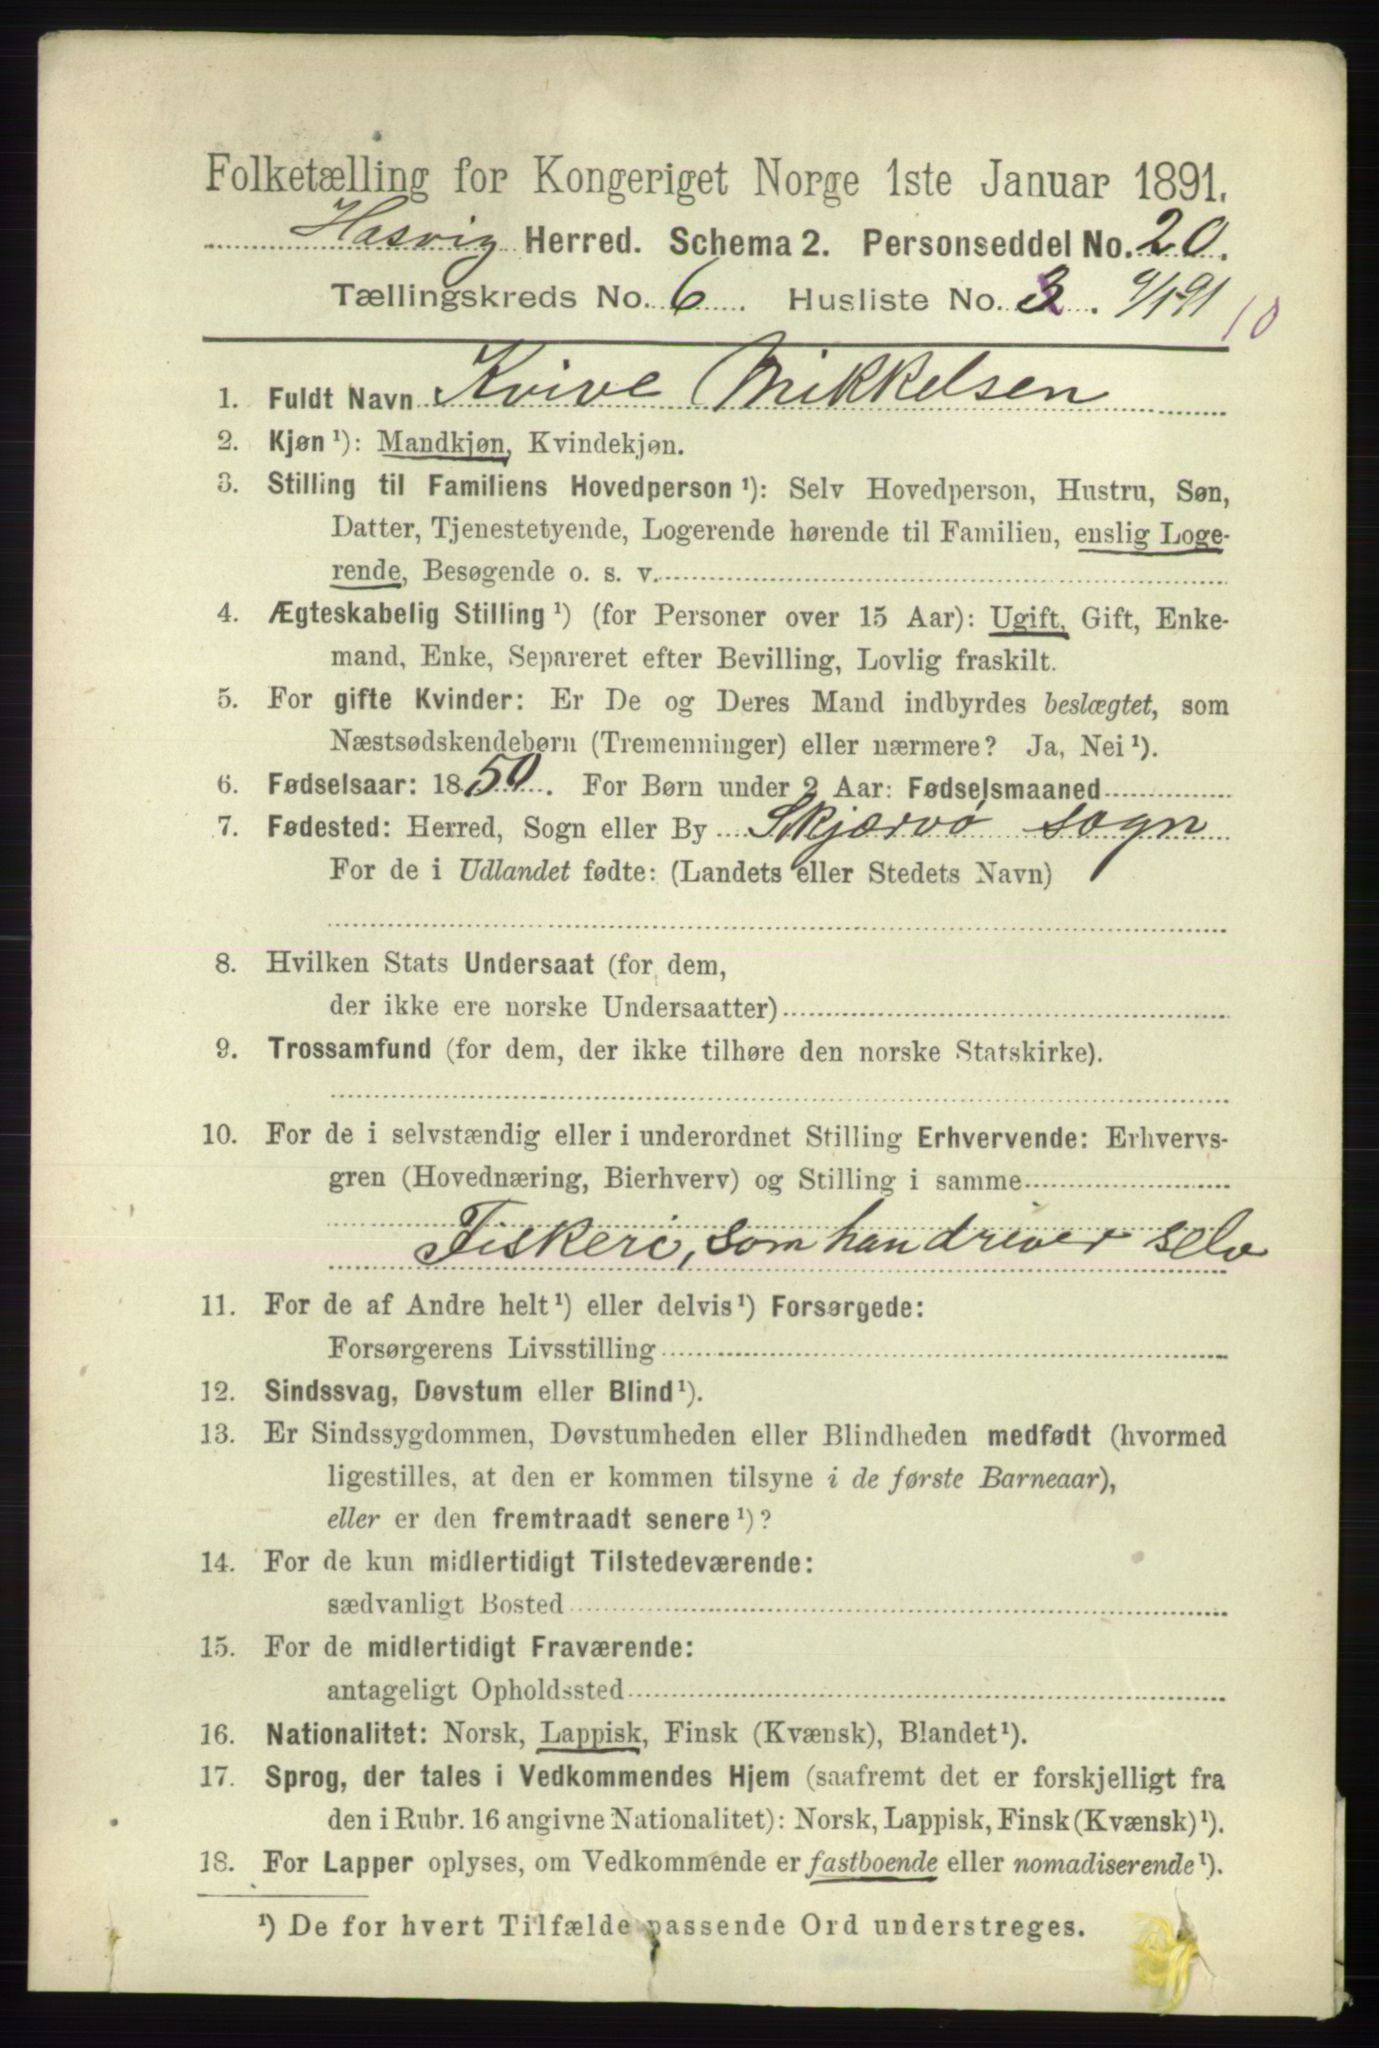 Folketælling for Kongeriget Norge 1ste Januar 1891.
Hasvig Herred. Schema 2. Personseddel No. 20.
Tællingskreds No. 6. Husliste No. 3. 9/1 91 10
1. Fuldt Navn Kvive Mikkelsen
2. Kjøn ¹): Mandkjøn, Kvindekjøn.
3. Stilling til Familiens Hovedperson ¹): Selv Hovedperson, Hustru, Søn,
Datter, Tjenestetyende, Logerende hørende til Familien, enslig Loge-
rende, Besøgende o. s. v.
4. Ægteskabelig Stilling ¹) (for Personer over 15 Aar): Ugift, Gift, Enke-
mand, Enke, Separeret efter Bevilling, Lovlig fraskilt.
5. For gifte Kvinder: Er De og Deres Mand indbyrdes beslægtet, som
Næstsødskendebørn (Tremenninger) eller nærmere? Ja, Nei ¹).
6. Fødselsaar: 1850. For Børn under 2 Aar: Fødselsmaaned
7. Fødested: Herred, Sogn eller By Skjærvø sogn
For de i Udlandet fødte: (Landets eller Stedets Navn)
8. Hvilken Stats Undersaat (for dem,
der ikke ere norske Undersaatter)
9. Trossamfund (for dem, der ikke tilhøre den norske Statskirke).
10. For de i selvstændig eller i underordnet Stilling Erhvervende: Erhvervs-
gren (Hovednæring, Bierhverv) og Stilling i samme
Fiskeri, som han driver selv
11. For de af Andre helt ¹) eller delvis ¹) Forsørgede:
Forsørgerens Livsstilling
12. Sindssvag, Døvstum eller Blind ¹).
13. Er Sindssygdommen, Døvstumheden eller Blindheden medfødt (hvormed
ligestilles, at den er kommen tilsyne i de første Barneaar),
eller er den fremtraadt senere ¹)?
14. For de kun midlertidigt Tilstedeværende:
sædvanligt Bosted
15. For de midlertidigt Fraværende:
antageligt Opholdssted
16. Nationalitet: Norsk, Lappisk, Finsk (Kvænsk), Blandet ¹).
17. Sprog, der tales i Vedkommendes Hjem (saafremt det er forskjelligt fra
den i Rubr. 16 angivne Nationalitet): Norsk, Lappisk, Finsk (Kvænsk) ¹).
18. For Lapper oplyses, om Vedkommende er fastboende eller nomadiserende ¹).
¹) De for hvert Tilfælde passende Ord understreges.